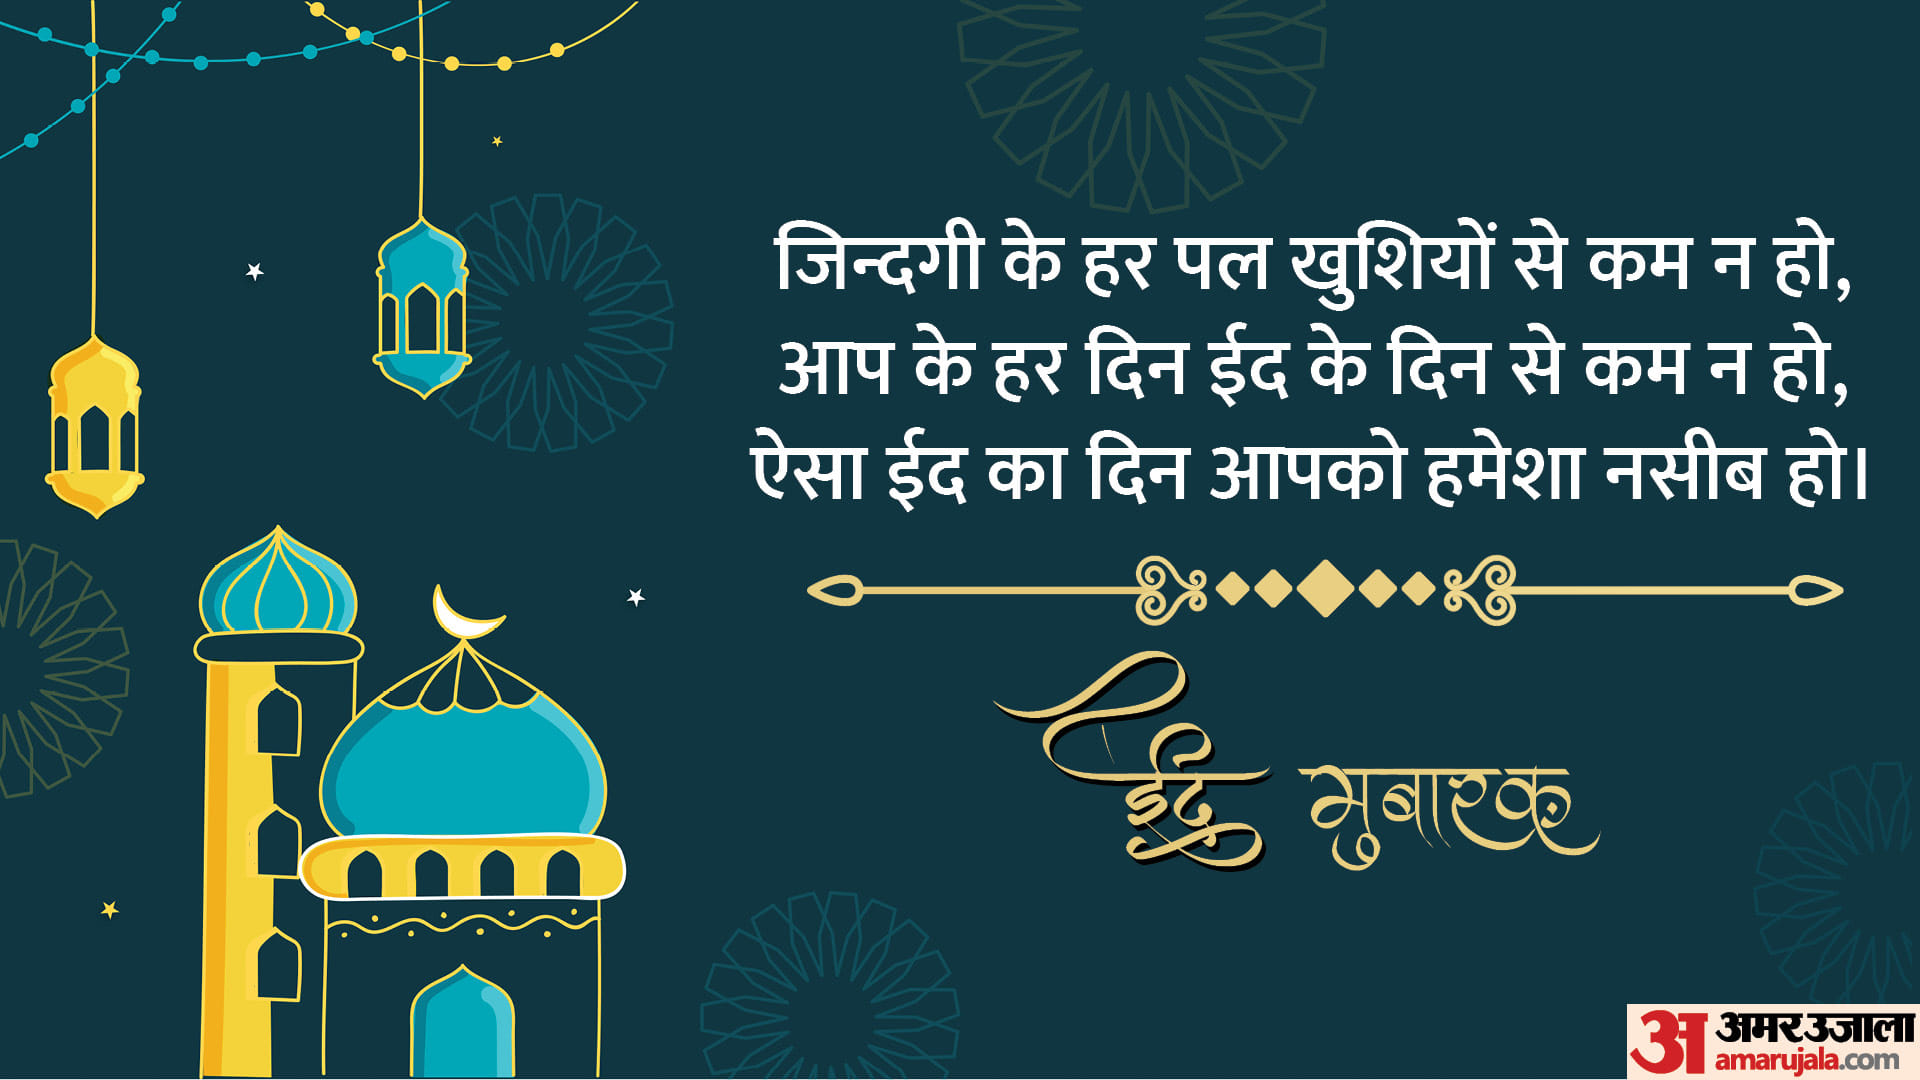 जिन्दगी के हर पल खुशियों से कम न हो,
आप के हर दिन ईद के दिन से कम न हो,
ऐसा ईद का दिन आपको हमेशा नसीब हो।
ईद मुबारक
अ अमर उजाला
amarujala.com